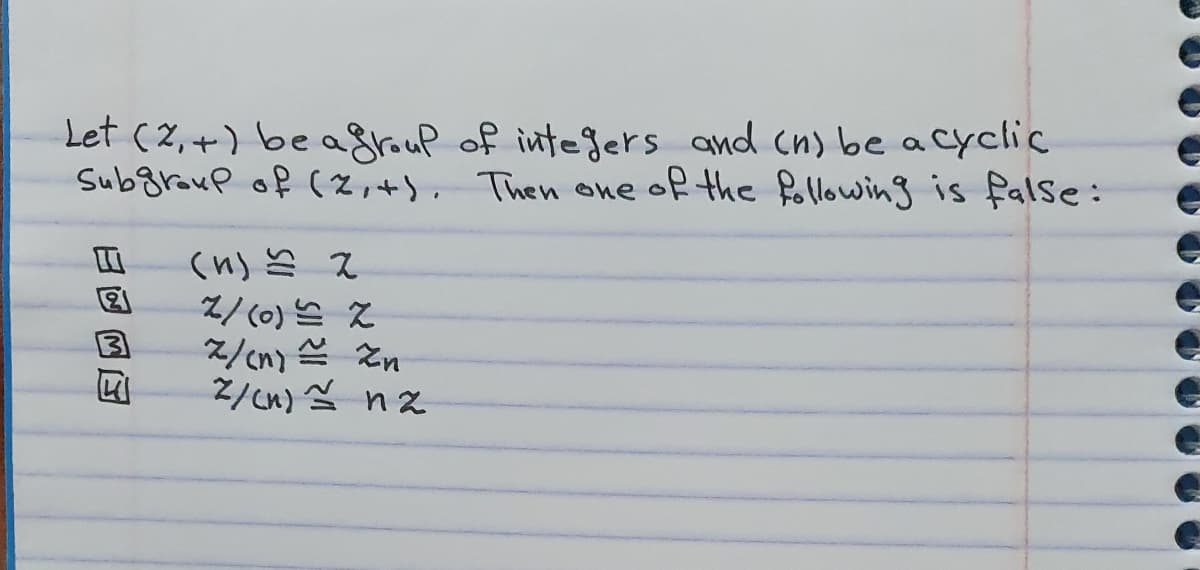 Let (Z,+) be a group of integers and (n) be a cyclic
Subgroup of (Z,+). Then one of the following is false:
1 (n) ≅ Z
2 Z/(0) ≅ Z
3 Z/(n) ≅ Zn
4 Z/(n) ≅ nZ